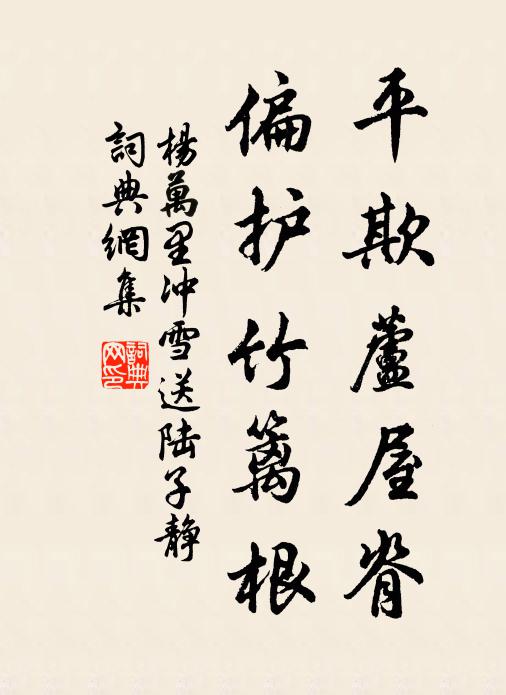 平欺蘆屋脊
偏护竹篱根
楊萬里冲雪送陆子静
詞典網集
詞典網印